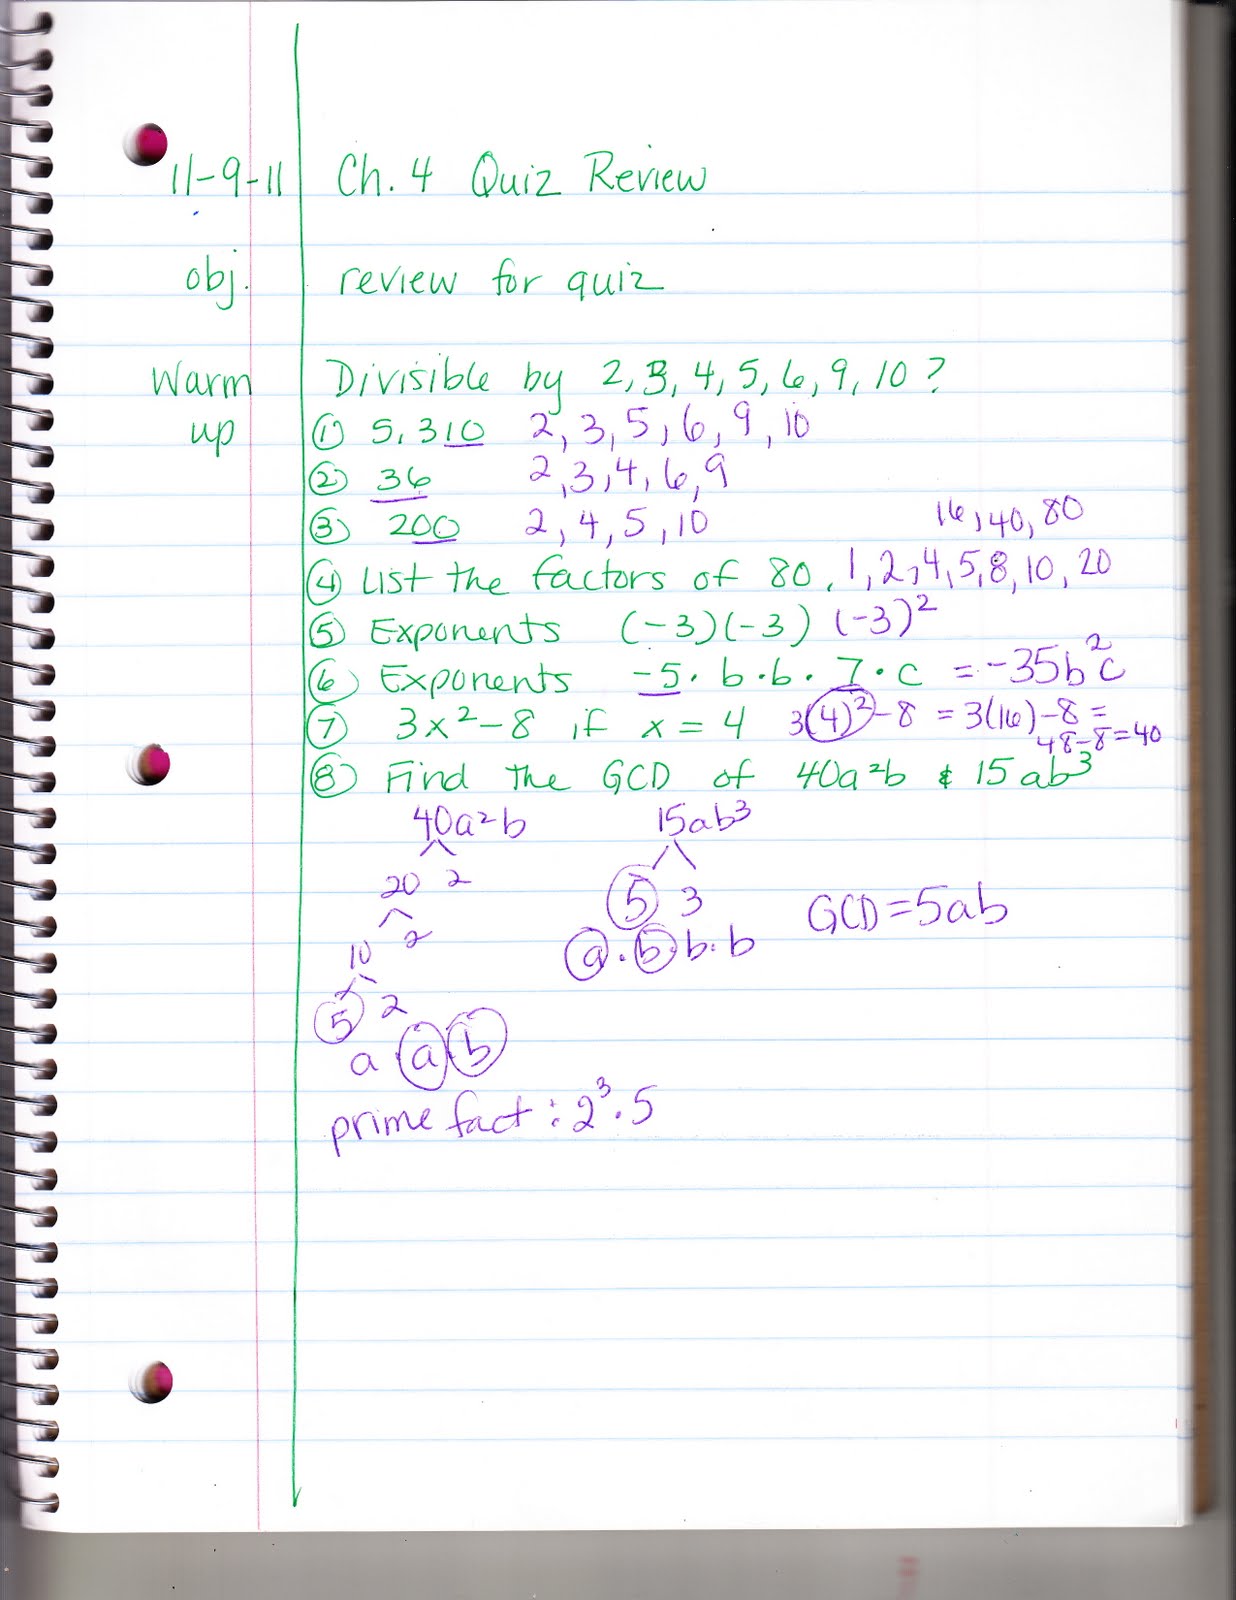 11-9-11 Ch. 4 Quiz Review
obj. review for quiz
Warm up Divisible by 2, 3, 4, 5, 6, 9, 10?
① 5,310 2, 3, 5, 6, 9, 10
② 36 2, 3, 4, 6, 9
③ 200 2, 4, 5, 10
16, 40, 80
④ List the factors of 80. 1, 2, 4, 5, 8, 10, 20
⑤ Exponents (-3)(-3) (-3)²
⑥ Exponents -5 · b · b · 7 · c = -35b²c
⑦ 3x² - 8 if x = 4 3(4)² - 8 = 3(16) - 8 =
48 - 8 = 40
⑧ Find the GCD of 40a²b & 15ab³
40a²b 15ab³
20 2 5 3 GCD = 5ab
10 2 a · b · b · b
5 2
a a b
prime fact: 2³ · 5